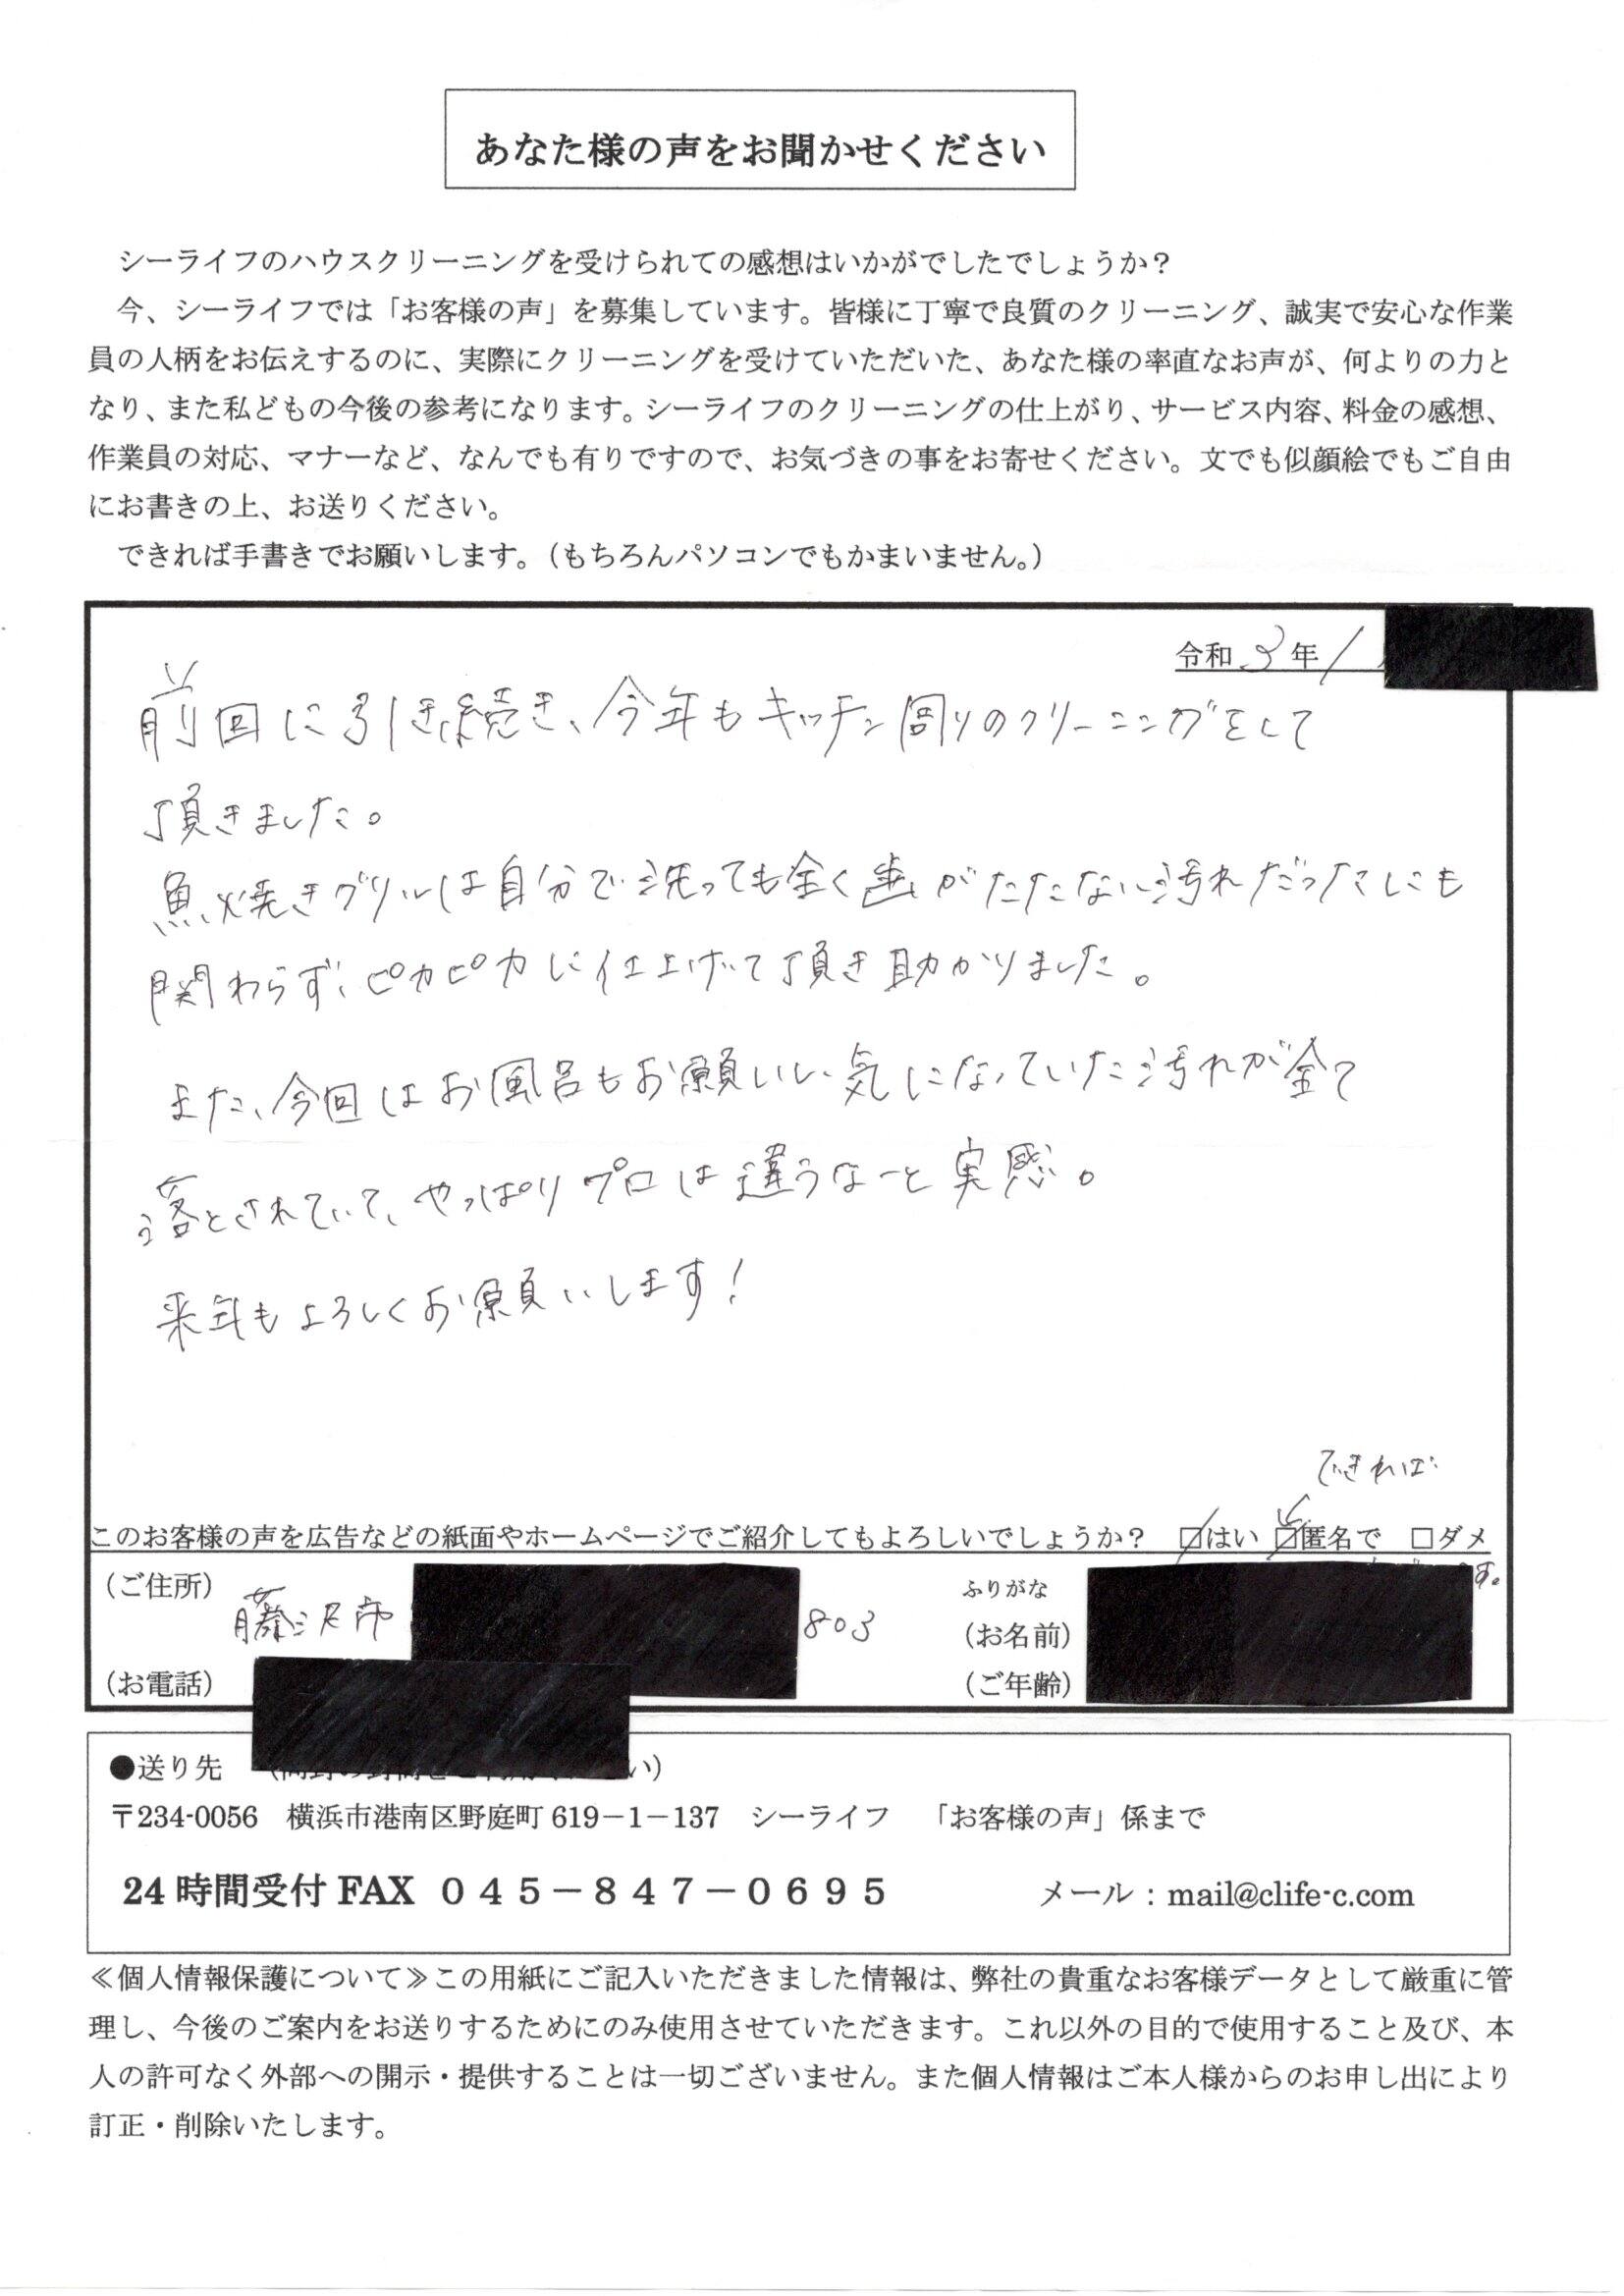 あなた様の声をお聞かせください
シーライフのハウスクリーニングを受けられての感想はいかがでしたでしょうか？
今、シーライフでは「お客様の声」を募集しています。皆様に丁寧で良質のクリーニング、誠実で安心な作業
員の人柄をお伝えするのに、実際にクリーニングを受けていただいた、あなた様の率直なお声が、何よりの力と
なり、また私どもの今後の参考になります。シーライフのクリーニングの仕上がり、サービス内容、料金の感想、
作業員の対応、マナーなど、なんでも有りですので、お気づきの事をお寄せください。文でも似顔絵でもご自由
にお書きの上、お送りください。
できれば手書きでお願いします。（もちろんパソコンでもかまいません。）
令和 3 年 1
前回に引き続き、今年もキッチン周りのクリーニングをして
頂きました。
魚焼きグリルは自分で洗っても全く歯がたたない汚れだったにも
関わらず、ピカピカに仕上げて頂き助かりました。
また、今回はお風呂もお願いし、気になっていた汚れが全て
落とされていて、やっぱりプロは違うなーと実感。
来年もよろしくお願いします！
できれば
このお客様の声を広告などの紙面やホームページでご紹介してもよろしいでしょうか？ ☑はい ☑匿名で □ダメ
す。
（ご住所） 藤沢市 803 ふりがな
（お名前）
（お電話） （ご年齢）
●送り先 い）
〒234-0056 横浜市港南区野庭町 619－1－137 シーライフ 「お客様の声」係まで
24 時間受付 FAX ０４５－８４７－０６９５ メール：mail@clife-c.com
≪個人情報保護について≫この用紙にご記入いただきました情報は、弊社の貴重なお客様データとして厳重に管
理し、今後のご案内をお送りするためにのみ使用させていただきます。これ以外の目的で使用すること及び、本
人の許可なく外部への開示・提供することは一切ございません。また個人情報はご本人様からのお申し出により
訂正・削除いたします。